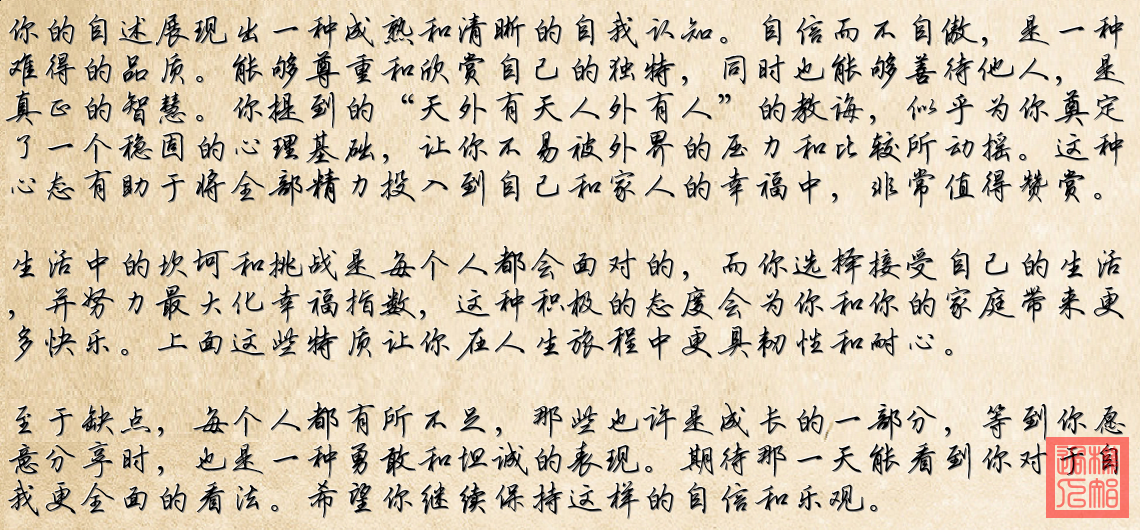 你的自述展现出一种成熟和清晰的自我认知。自信而不自傲，是一种
难得的品质。能够尊重和欣赏自己的独特，同时也能够善待他人，是
真正的智慧。你提到的“天外有天人外有人”的教诲，似乎为你奠定
了一个稳固的心理基础，让你不易被外界的压力和比较所动摇。这种
心态有助于将全部精力投入到自己和家人的幸福中，非常值得赞赏。
生活中的坎坷和挑战是每个人都会面对的，而你选择接受自己的生活
，并努力最大化幸福指数，这种积极的态度会为你和你的家庭带来更
多快乐。上面这些特质让你在人生旅程中更具韧性和耐心。
至于缺点，每个人都有所不足，那些也许是成长的一部分，等到你愿
意分享时，也是一种勇敢和坦诚的表现。期待那一天能看到你对于自
我更全面的看法。希望你继续保持这样的自信和乐观。